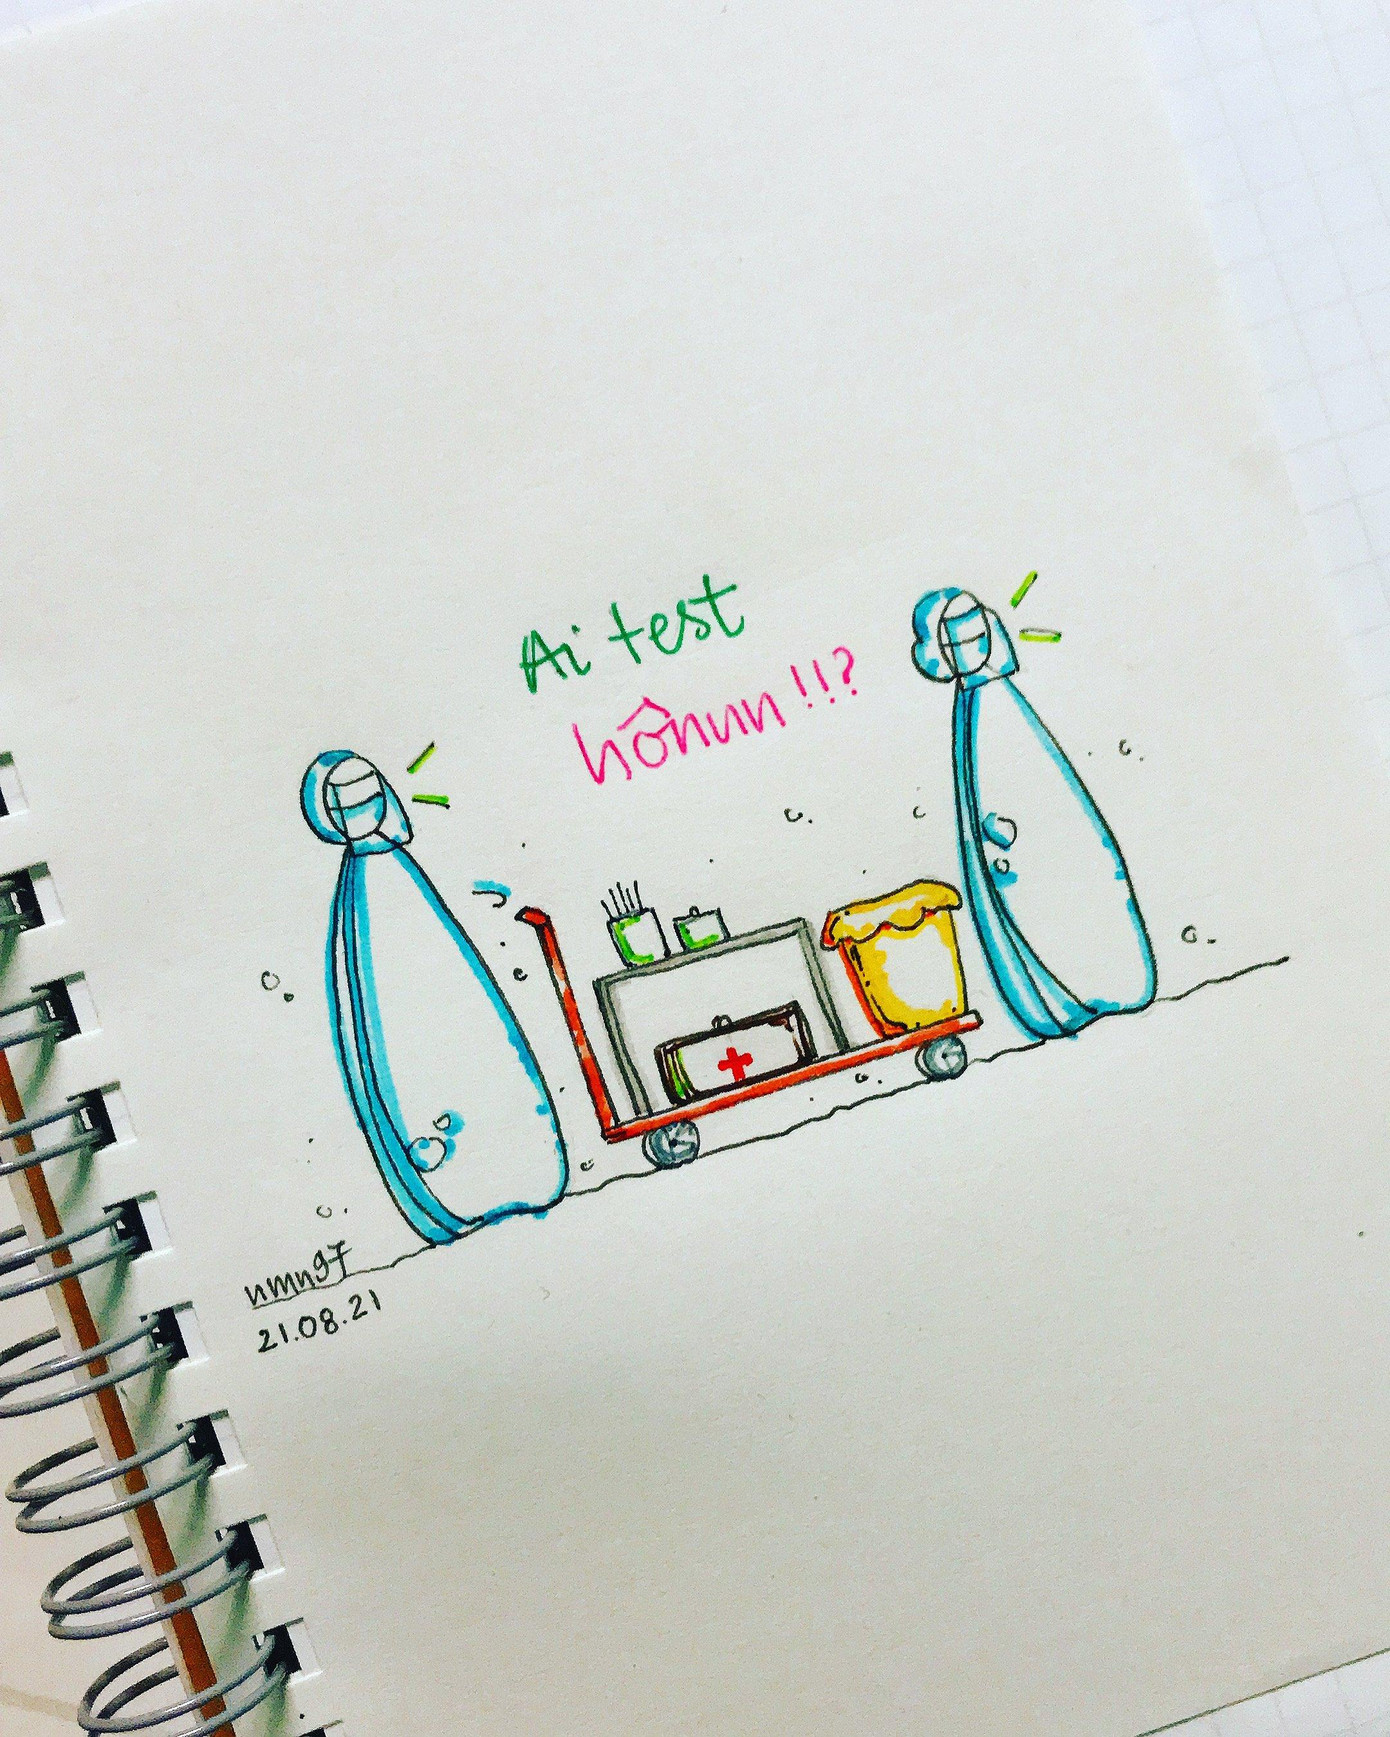 Ai test
hônun!!?
nmn97
21.08.21